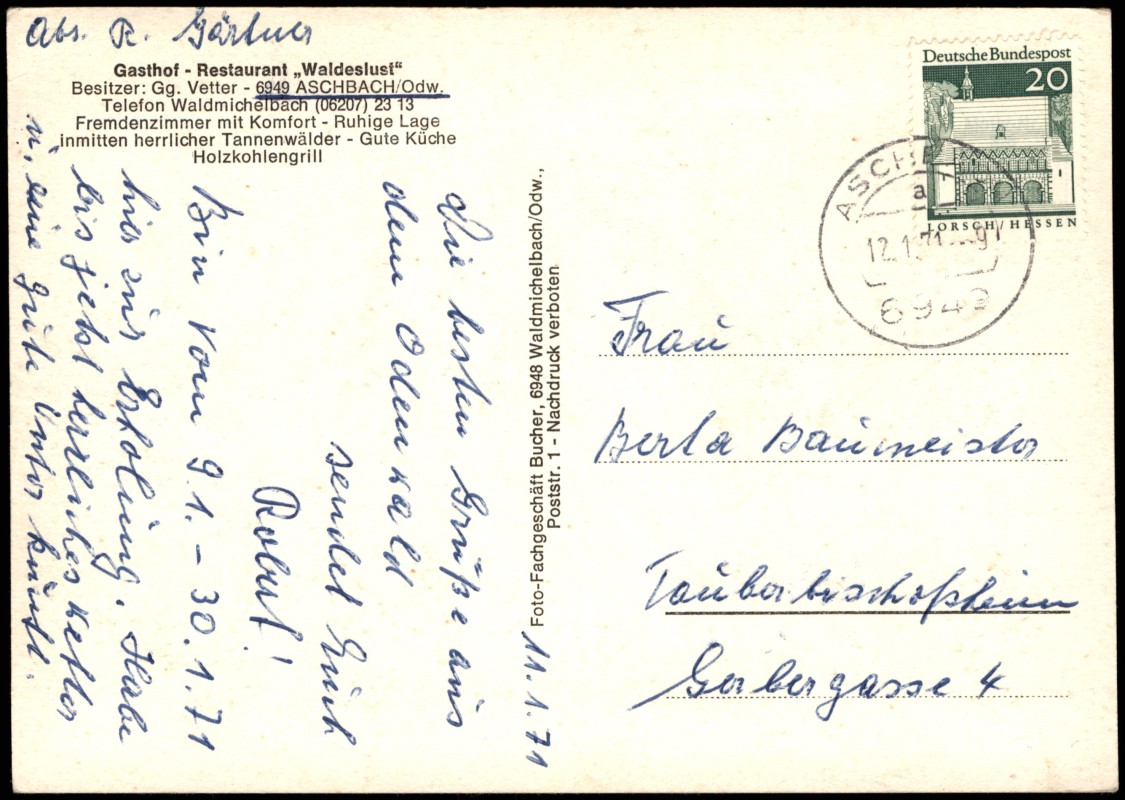 Abs. R. Gärtner
Gasthof - Restaurant „Waldeslust“
Besitzer: Gg. Vetter - 6949 ASCHBACH/Odw.
Telefon Waldmichelbach (06207) 23 13
Fremdenzimmer mit Komfort - Ruhige Lage
inmitten herrlicher Tannenwälder - Gute Küche
Holzkohlengrill
11.1.71
Die besten Grüße aus
dem Odenwald
sendet Euch
Robert!
Bin vom 9.1. - 30.1.71
hier zur Erholung. Habe
bis jetzt herrliches Wetter
u. eine gute Unterkunft.
Foto-Fachgeschäft Bucher, 6948 Waldmichelbach/Odw.,
Poststr. 1 - Nachdruck verboten
Deutsche Bundespost
20
LORSCH/HESSEN
ASCHB
a
12.1.71 - 9
6949
Frau
Berta Baumeister
Tauberbischofsheim
Gerbergasse 4